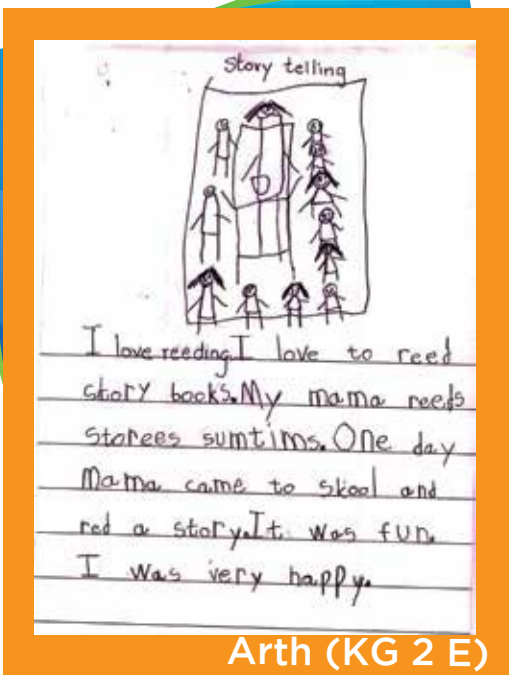 Story telling
I love reeding.I love to reed
story books.My mama reeds
storees sumtims.One day
Mama came to skool and
red a story.It was fun.
I was very happy.
Arth (KG 2 E)